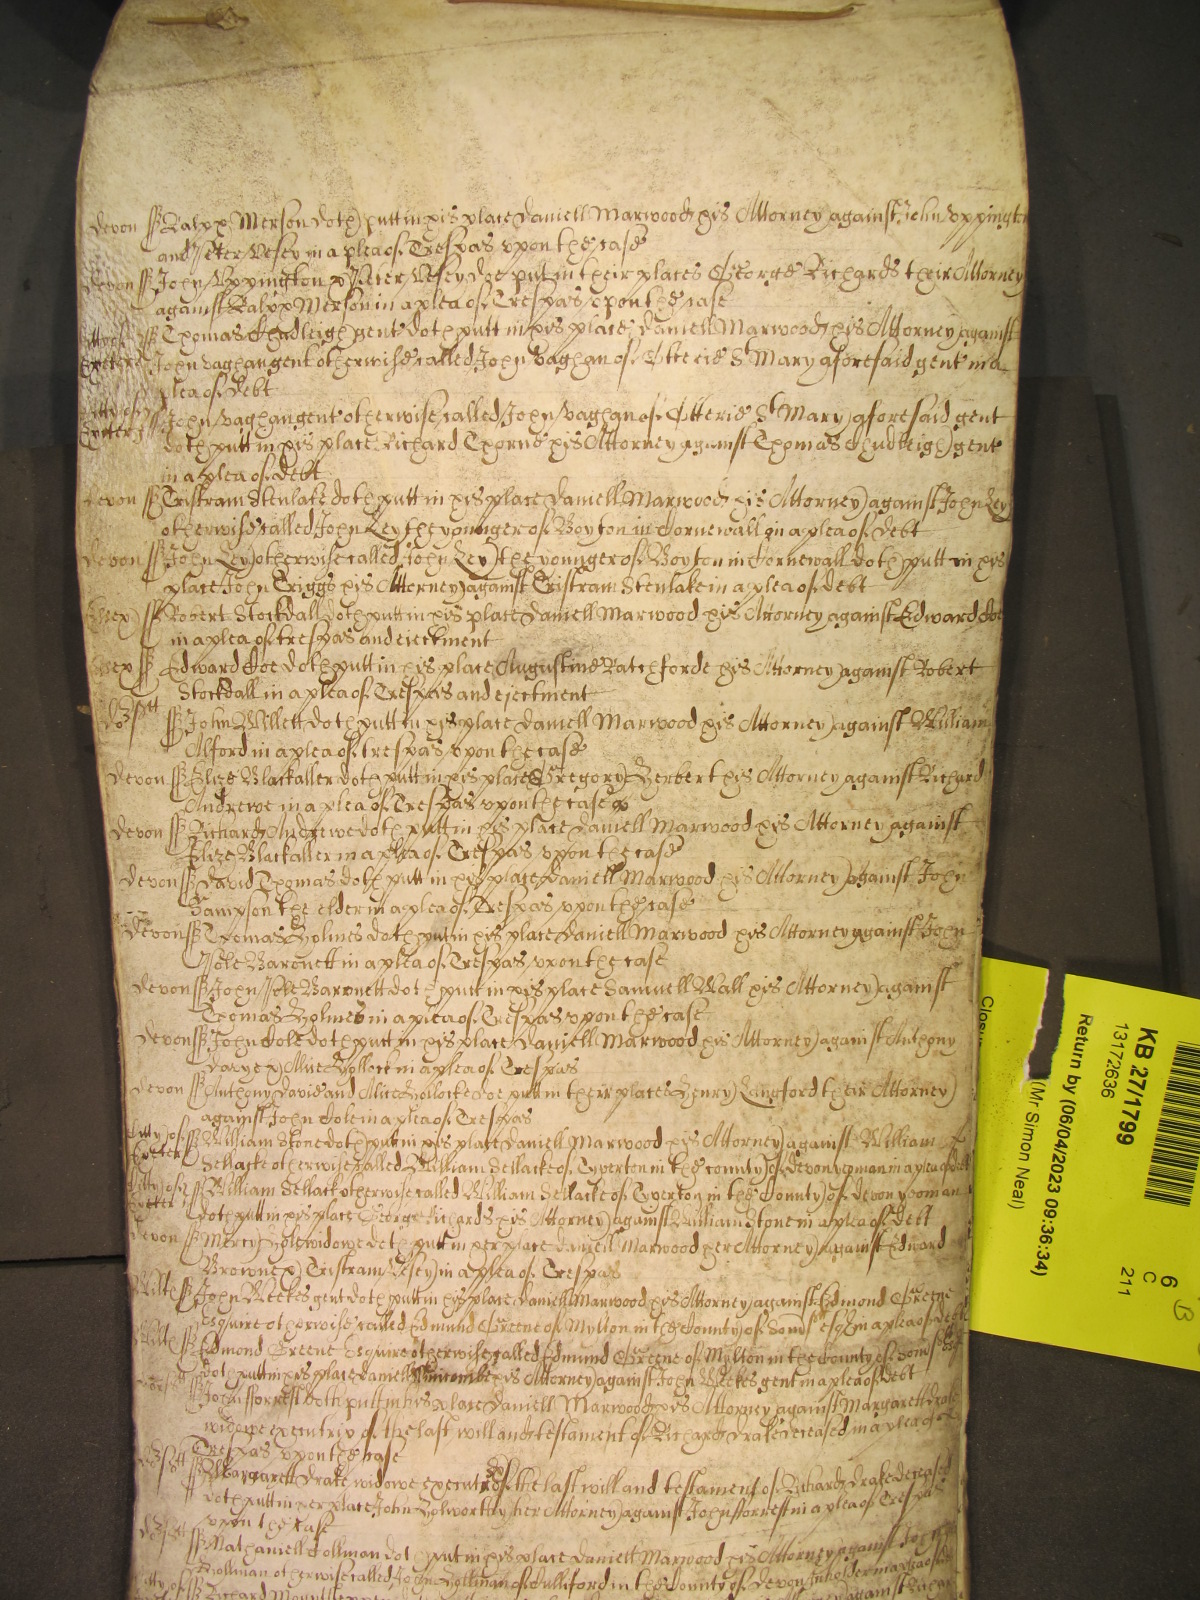 devon ss Ralph Merson doth putt in his place Daniell Marwood his Attorney against John Uppington
and Peter Vesey in a plea of Trespas upon the case
devon ss John Uppington & Peter Vesey doe put in their places George Richards their Attorney
against Ralph Merson in a plea of Trespas upon the case
ss Thomas Chudleigh gent doth putt in his place Daniell Marwood his Attorney against
Exeter John Vaghan gent otherwise called John Vaghan of Otterie St Mary aforesaid gent in a
plea of debt
ss John Vaghan gent otherwise called John Vaghan of Otterie St Mary aforesaid gent
Exeter doth putt in his place Richard Thorne his Attorney against Thomas Chudleigh gent
in a plea of debt
devon ss Tristram Stenlake doth putt in his place Daniell Marwood his Attorney against John Ley
otherwise called John Ley the younger of Boyton in Cornewall in a plea of debt
devon ss John Ley otherwise called John Ley the younger of Boyton in Cornewall doth putt in his
place John Griggs his Attorney against Tristram Stenlake in a plea of debt
Essex ss Robert Stockdall doth putt in his place Daniell Marwood his Attorney against Edward doe
in a plea of trespas and ejectment
Essex ss Edward doe doth putt in his place Augustine Batchforde his Attorney against Robert
Stockdall in a plea of Trespas and ejectment
ss John Willett doth putt in his place Daniell Marwood his Attorney against William
Alford in a plea of trespas upon the case
devon ss Elize Blackaller doth putt in his place Gregory Herbert his Attorney against Richard
Andrewe in a plea of Trespas upon the case
devon ss Richard Andrewe doth putt in his place Daniell Marwood his Attorney against
Elize Blackaller in a plea of Trespas upon the case
devon ss David Thomas doth putt in his place Daniell Marwood his Attorney against John
Sampson the elder in a plea of Trespas upon the case
Devon ss Thomas Holmes doth put in his place Daniell Marwood his Attorney against John
Pole Baronett in a plea of Trespas upon the case
devon ss John Pole Baronett doth putt in his place Samuell Wall his Attorney against
Thomas Holmes in a plea of Trespas upon the case
devon ss John Cole doth putt in his place Daniell Marwood his Attorney against Anthony
Alice Hollocke in a plea of Trespas
devon ss Anthony David and Alice Hollocke doe putt in their places Henry Langford their Attorney
against John Cole in a plea of Trespas
Citty of ss William Stone doth put in his place Daniell Marwood his Attorney against William
Exeter Sellacke otherwise called William Sellacke of Tyverton in the county of devon yeoman in a plea of debt
Citty of ss William Sellack otherwise called William Sellacke of Tyverton in the County of devon yeoman
Exeter doth putt in his place George Richards his Attorney against William Stone in a plea of debt
devon ss Mercy widowe doth putt in her place Daniell Marwood her Attorney against Edward
Browne & Tristram Vesey in a plea of Trespas
Wilts ss John Weekes gent doth putt in his place Daniell Marwood his Attorney against Edmond Greene
Esquire otherwise called Edmund Greene of Mylton in the County of Somst esqr in a plea of debt
Wilts ss Edmond Greene Esquire otherwise called Edmund Greene of Mylton in the County of Somst Esqr
doth putt in his place Daniell his Attorney against John Weekes gent in a plea of debt
ss John fforrest doth putt in his place Daniell Marwood his Attorney against Margarett drake
widowe executrix of the last will and testament of Richard drake deceased in a plea of
Trespas upon the case
ss Margarett Drake widowe executrix of the last will and testament of Richard drake deceased
doth putt in her place John Holworthy her Attorney against John fforrest in a plea of Trespas
upon the case
ss Nathaniell Collman doth put in his place Daniell Marwood his Attorney against John
otherwise called John of in the County of Devon Inholder in a plea of
Citty of ss Richard against Richard
KB 27/1799
13172636
Return by (06/04/2023 09:36:34)
(Mr Simon Neal)
6
C
211